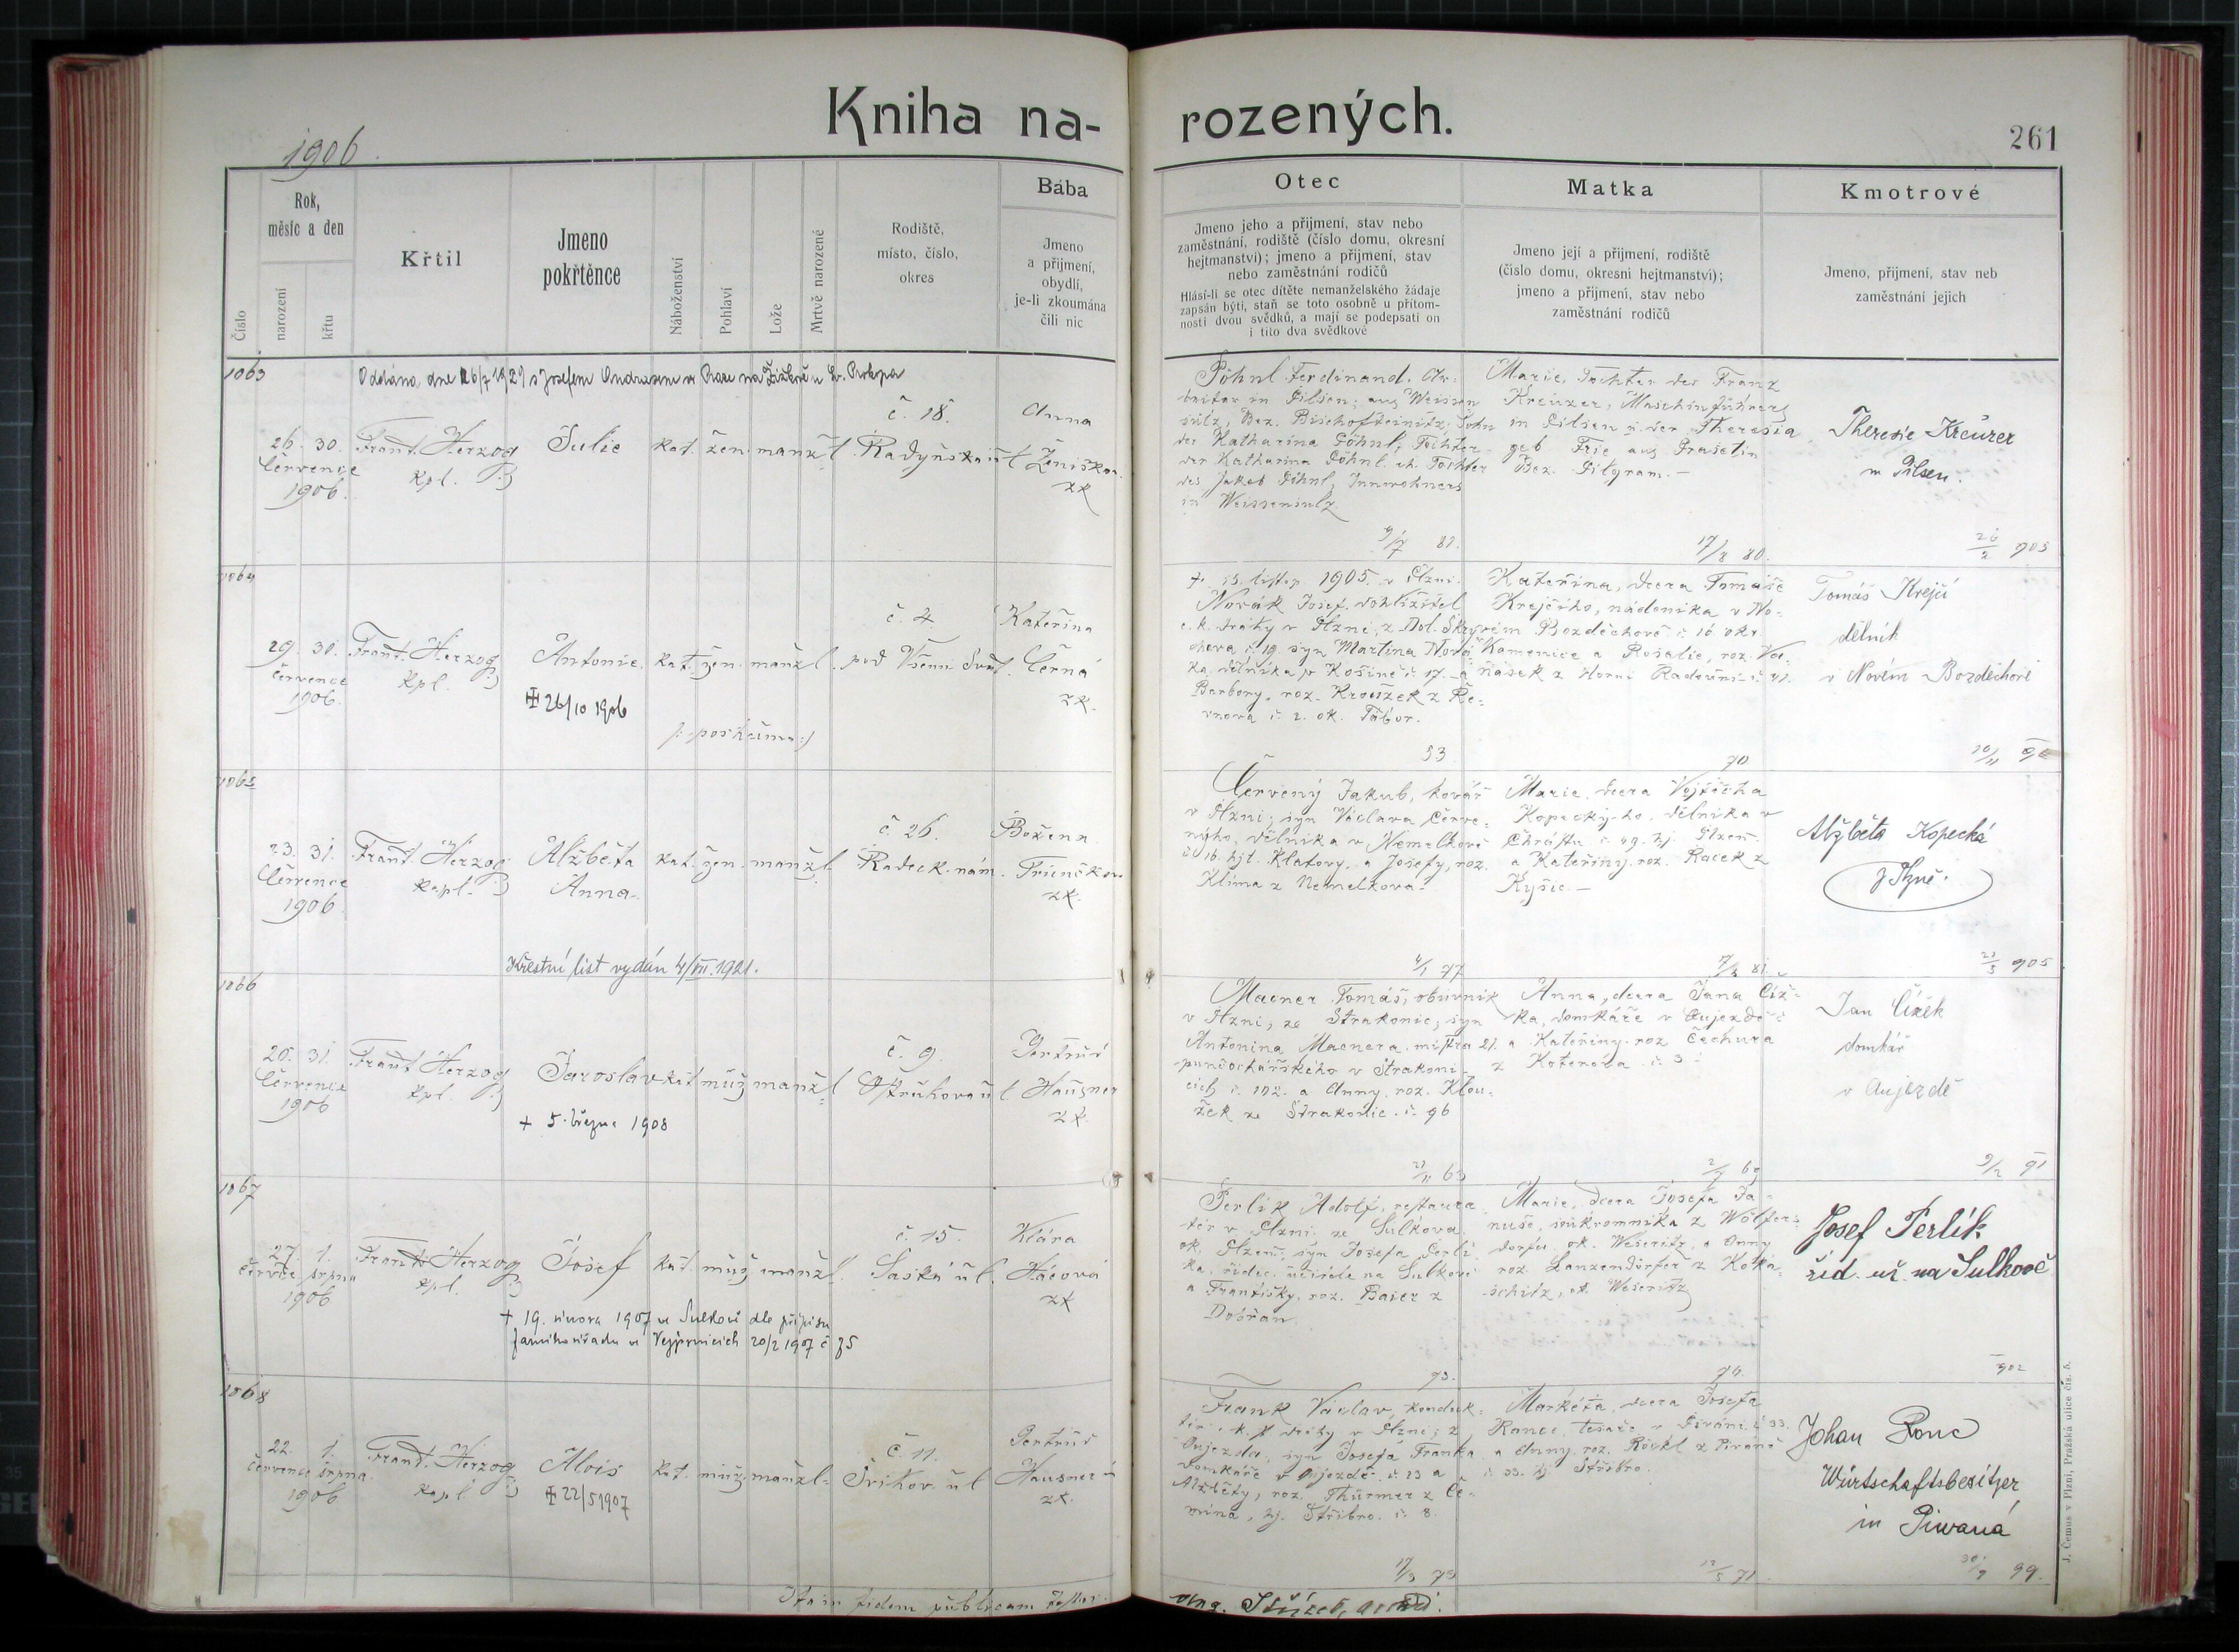 Kniha na-
rozených.
1906.
261
Rok,
měsíc a den
Číslo
narození
křtu
Křtil
Jmeno
pokřtěnce
Náboženství
Pohlaví
Lože
Mrtvě narozené
Rodiště,
místo, číslo,
okres
Bába
Jmeno
a přijmení,
obydlí,
je-li zkoumána
čili nic
Otec
Jmeno jeho a přijmení, stav nebo
zaměstnání, rodiště (číslo domu, okresní
hejtmanství); jmeno a přijmení, stav
nebo zaměstnání rodičů
Hlásí-li se otec dítěte nemanželského žádaje
zapsán býti, staň se toto osobně u přítom-
nosti dvou svědků, a mají se podepsati on
i tito dva svědkové
Matka
Jmeno její a přijmení, rodiště
(číslo domu, okresní hejtmanství);
jmeno a přijmení, stav nebo
zaměstnání rodičů
Kmotrové
Jmeno, přijmení, stav neb
zaměstnání jejich
1063
Oddána dne 26/7 1929 s Josefem v Praze na Žižkově u sv. Prokopa
26. 30.
Července
1906.
Frant. Herzog
Kpl.
Julie
kat. žen. manžl.
č. 18.
Radyňská ul.
Anna
zk
Pöhnl Ferdinand, Ar-
beiter in Pilsen; aus Weissen
sulz, Bez. Bischofteinitz; Sohn
der Katharina Pöhnl; Tochter
der Katharina Pöhnl. eh. Tochter
des Jakob Pöhnl, Innwohners
in Weissensulz
9/7 81.
Marie, Tochter des Franz
Kreuzer, Maschinführers
in Pilsen u. der Theresia
geb. aus Prasetin
Bez. Pilgram.-
17/8 80.
Theresie Kreuzer
in Pilsen.
26/2 905
1064
29. 30.
července
1906.
Frant. Herzog
Kpl.
Antonie
kat. žen. manžl.
26/10 1906
č. 4
pod Všemi Svat.
Kateřina
Černá
zk.
+ 13. listop. 1905. v Plzni.
Novák Josef, dohlížitel
c. k. dráhy v Plzni, z Dol. Skrý-
chova č. 19 syn Martina Nová-
ka, dělníka v Košíně č. 17. a
Barbory, roz. Kroužek z Ře-
č. 2. ok. Tábor.
53
Kateřina, dcera Tomáše
Krejčího, nádeníka v No-
vém Bozděchově č. 16 okr.
Kamenice a Rosalie, roz. Va-
ňásek z Horní Radouně č. 41.
70
Tomáš Krejčí
dělník
v Novém Bozděchově
1065
23. 31.
Července
1906
Frant. Herzog
Kapl.
Alžběta
Anna
kat. žen. manžl.
č. 26.
Radeck. nám.
Božena
zk.
Křestní list vydán 4/VII. 1921.
Červený Jakub, kovář
v Plzni; syn Václava Červe-
ného, dělníka v Nemelkově
č. 16. hjt. Klatovy, a Josefy, roz.
Klíma z Nemelkova.
4/1 77
Marie, dcera Vojtěcha
Kopeckýho, dělníka v
Chrástu č. 49. hj. Plzeň
a Kateřiny, roz. Racek z
Kyšic.-
7/3 81.
Alžběta Kopecká
z Plzně.
23/5 905
1066
20. 31.
Července
1906
Frant. Herzog
Kpl.
Jaroslav
kat. muž. manžl.
+ 5. března 1908
č. 9.
Otruhova ul.
Gertrud
Hausner
zk.
Macner Tomáš, obuvník
v Plzni, ze Strakonic; syn
Antonína Macnera, mistra
punčochářského v Strakoni-
cích č. 102. a Anny, roz. Klou-
žek ze Strakonic. č. 96
21/11 63
Anna, dcera Jana Číž-
ka, domkáře v Aujezdě č.
21. a Kateřiny, roz. Čechura
z Koterova. č. 3
2/7 69
Jan Čížek
domkář
v Aujezdě
9/2 91
1067
27. 1.
července srpna
1906
Frant. Herzog
Kpl.
Josef
kat. muž. manžl.
+ 19. února 1907 v Sulkově dle přípisu
farního úřadu ve Vejprnicích 20/2 1907 č 75
č. 15.
Saská ul.
Klára
Hácová
zk
Perlík Adolf, restaura-
tér v Plzni, ze Sulkova
ok. Plzeň, syn Josefa Perlí-
ka, řídíc. učitele na Sulkově
a Františky, roz. Baier z
Dobřan.
73.
Marie, dcera Josefa Ja-
nuše, soukromníka z Wolfers-
dorfu, ok. Weseritz, a Anny
roz. Lanzendörfer z Koka-
schitz, ok. Weseritz
74.
Josef Perlík
říd. uč. na Sulkově
902
1068
22. 1.
července srpna
1906
Frant. Herzog
Kapl
Alois
22/5 1907
kat. muž. manžl.
č 11.
Gertrud
Hausner
zk.
Frank Václav, konduk-
tér c. k. st. dráhy v Plzni; z
Oujezda, syn Josefa Franka
domkáře v Oujezdě č. 23 a
Alžběty, roz. Thürmer z Če-
mína, hj. Stříbro. č. 8.
17/3 73
Markéta, dcera Josefa
Rance, tesaře v Pivani č. 33.
a Anny, roz. Röckl z Pivaně
č. 33. hj. Stříbro.
12/5 71
Johan
Würtschaftsbesitzer
in Piwaná
30/9 99.
Ita in fidem publicam testor.
J. Čemus v Plzni, Pražská ulice čís. 5.